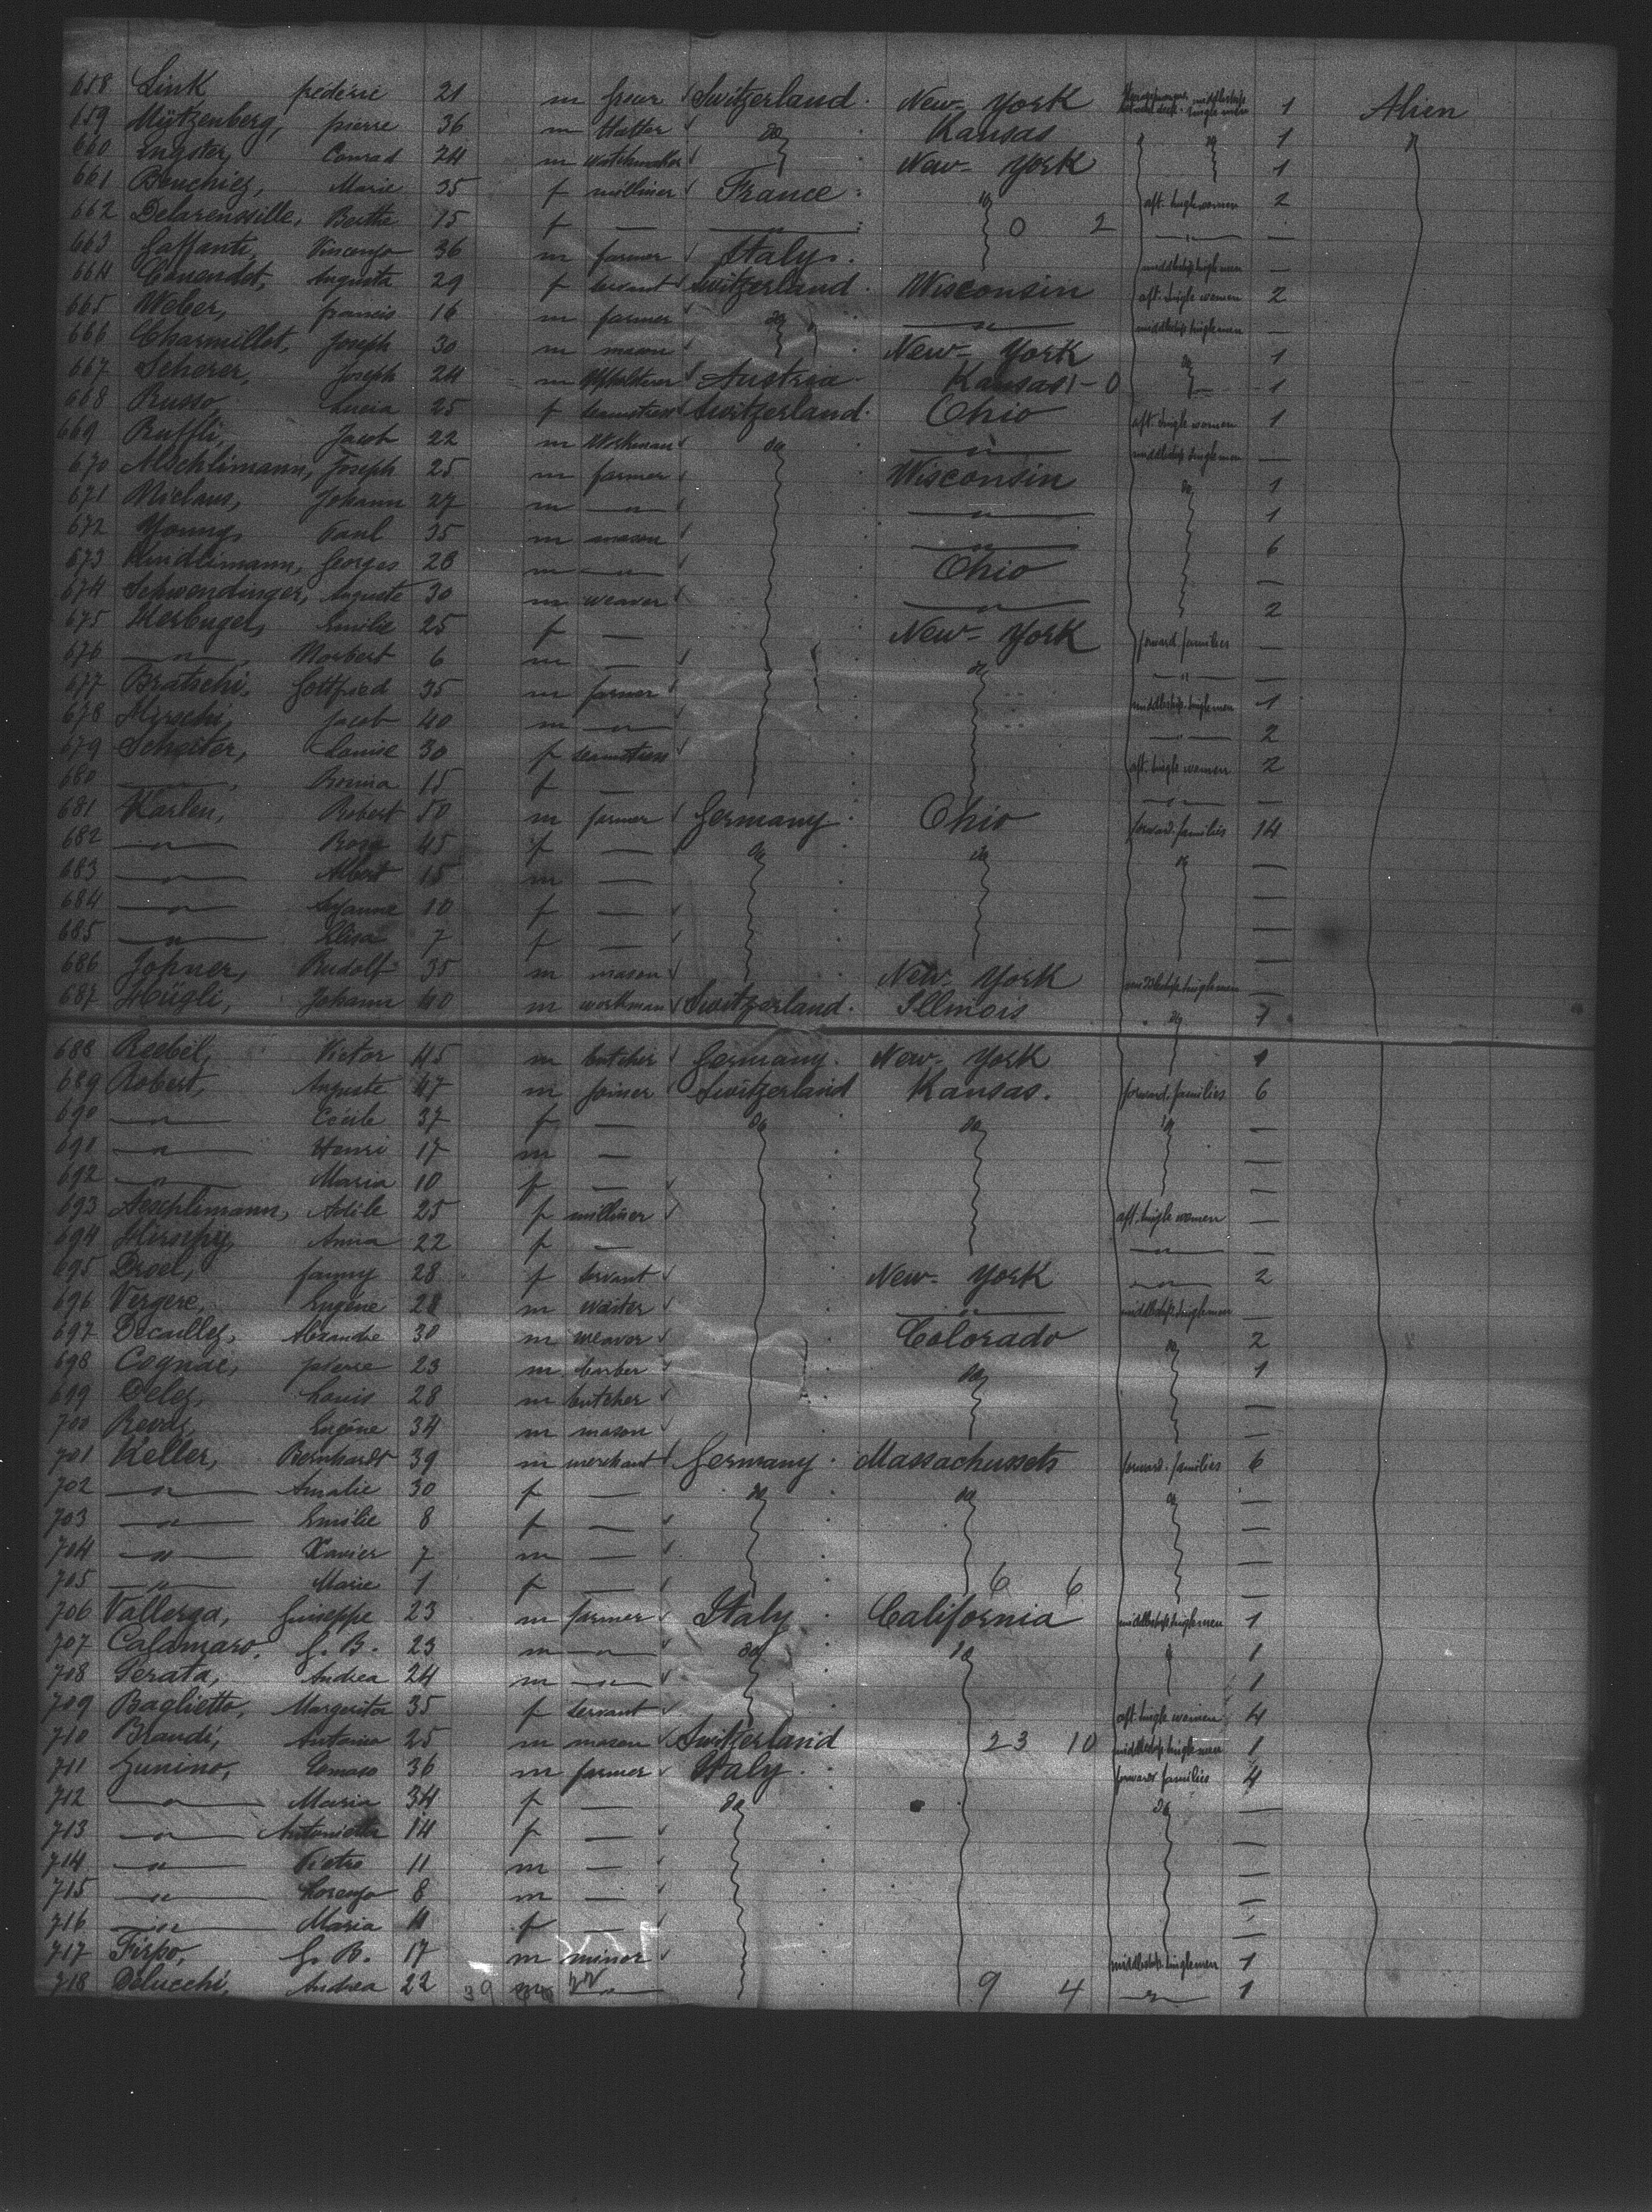 658 Link frédéric 21 m Switzerland. New-York 1 Alien
159 Mützenberg, pierre 36 m Hatter do Kansas 1
660 Engster, Conrad 24 m watchmaker New-York 1
661 Bouchiez, Marie 35 f milliner France do aft. single women 2
662 Berthe 15 f — 0 2 —"— —
663 Gaffanti, Vincenzo 36 m farmer Italy. middleship single men —
664 Augusta 29 f servant Switzerland. Wisconsin aft. single women 2
665 Weber, francis 16 m farmer do —"— middleship single men —
666 Charmillot, Joseph 30 m mason New-York do 1
667 Scherer, Joseph 24 m Austria Kansas 1-0 1
668 Russo, Lucia 25 f seamstress Switzerland. Ohio aft. single women 1
669 Ruffli, Jacob 22 m Workman do —"— middleship single men —
670 Aeschlimann, Joseph 25 m farmer Wisconsin do 1
671 Niclaus, Johann 27 m —"— —"— 1
672 Young, Paul 35 m mason —"— 6
673 Kindlimann, Georges 28 m —"— Ohio —
674 Schwendinger, Auguste 30 m weaver —"— 2
675 Emilie 25 f — New-York forward. families —
676 —"— Norbert 6 m — do —"— —
677 Bratschi, Gottfried 35 m farmer middleship single men 1
678 Hirschi, Jacob 40 m —"— —"— 2
679 Louise 30 f seamstress aft. single women 2
680 —"—, 15 f — —"— —
681 Karlen, Robert 50 m farmer Germany Ohio forward. families 14
682 —"— Rosa 45 f — do do do —
683 —"— Albert 15 m — —
684 —"— Suzanne 10 f — —
685 —"— Elisa 7 f — —
686 Johner, Rudolf 35 m mason New-York middleship single men —
687 Hügli, Johann 40 m workman Switzerland. Illinois do 7
688 Reebel, Victor 45 m butcher Germany. New-York 1
689 Robert, Auguste 47 m joiner Switzerland Kansas. forward. families 6
690 —"— Cécile 37 f — do do do —
691 —"— Henri 17 m — —
692 —"— Maria 10 f — —
693 Aeschlimann, Adèle 25 f milliner aft. single women —
694 Anna 22 f — —"— —
695 Droel, fanny 28 f servant New-York —"— 2
696 Vergere, Eugène 28 m waiter —"— middleship single men —
697 Decaillez, Alexandre 30 m weaver Colorado do 2
698 Cognac, pierre 23 m barber do 1
699 Delez, Louis 28 m butcher —
700 Eugène 34 m mason —
701 Keller, Bernhardt 39 m merchant Germany. Massachussets forward. families 6
702 —"— Amalie 30 f — do do do —
703 —"— Emilie 8 f — —
704 —"— Xavier 7 m — —
705 —"— Marie 1 f — 6 6 —
706 Vallerga, Guiseppe 23 m farmer Italy California middleship single men 1
707 Calamaro, G. B. 23 m —"— do do 1
708 Gerata, Andrea 24 m —"— 1
709 Baglietto, Margerita 35 f servant aft. single women 4
710 Brandi, Antonio 25 m mason Switzerland 23 10 middleship single men 1
711 Zunino, Tomaso 36 m farmer Italy. forward families 4
712 —"— Maria 34 f — do do —
713 —"— Antonietta 14 f — —
714 —"— Pietro 11 m — —
715 —"— Lorenzo 8 m — —
716 —"— Maria 4 f — —
717 Firpo, G. B. 17 m minor middleship single men 1
718 Delucchi, Andrea 22 39 m —"— 9 4 —"— 1